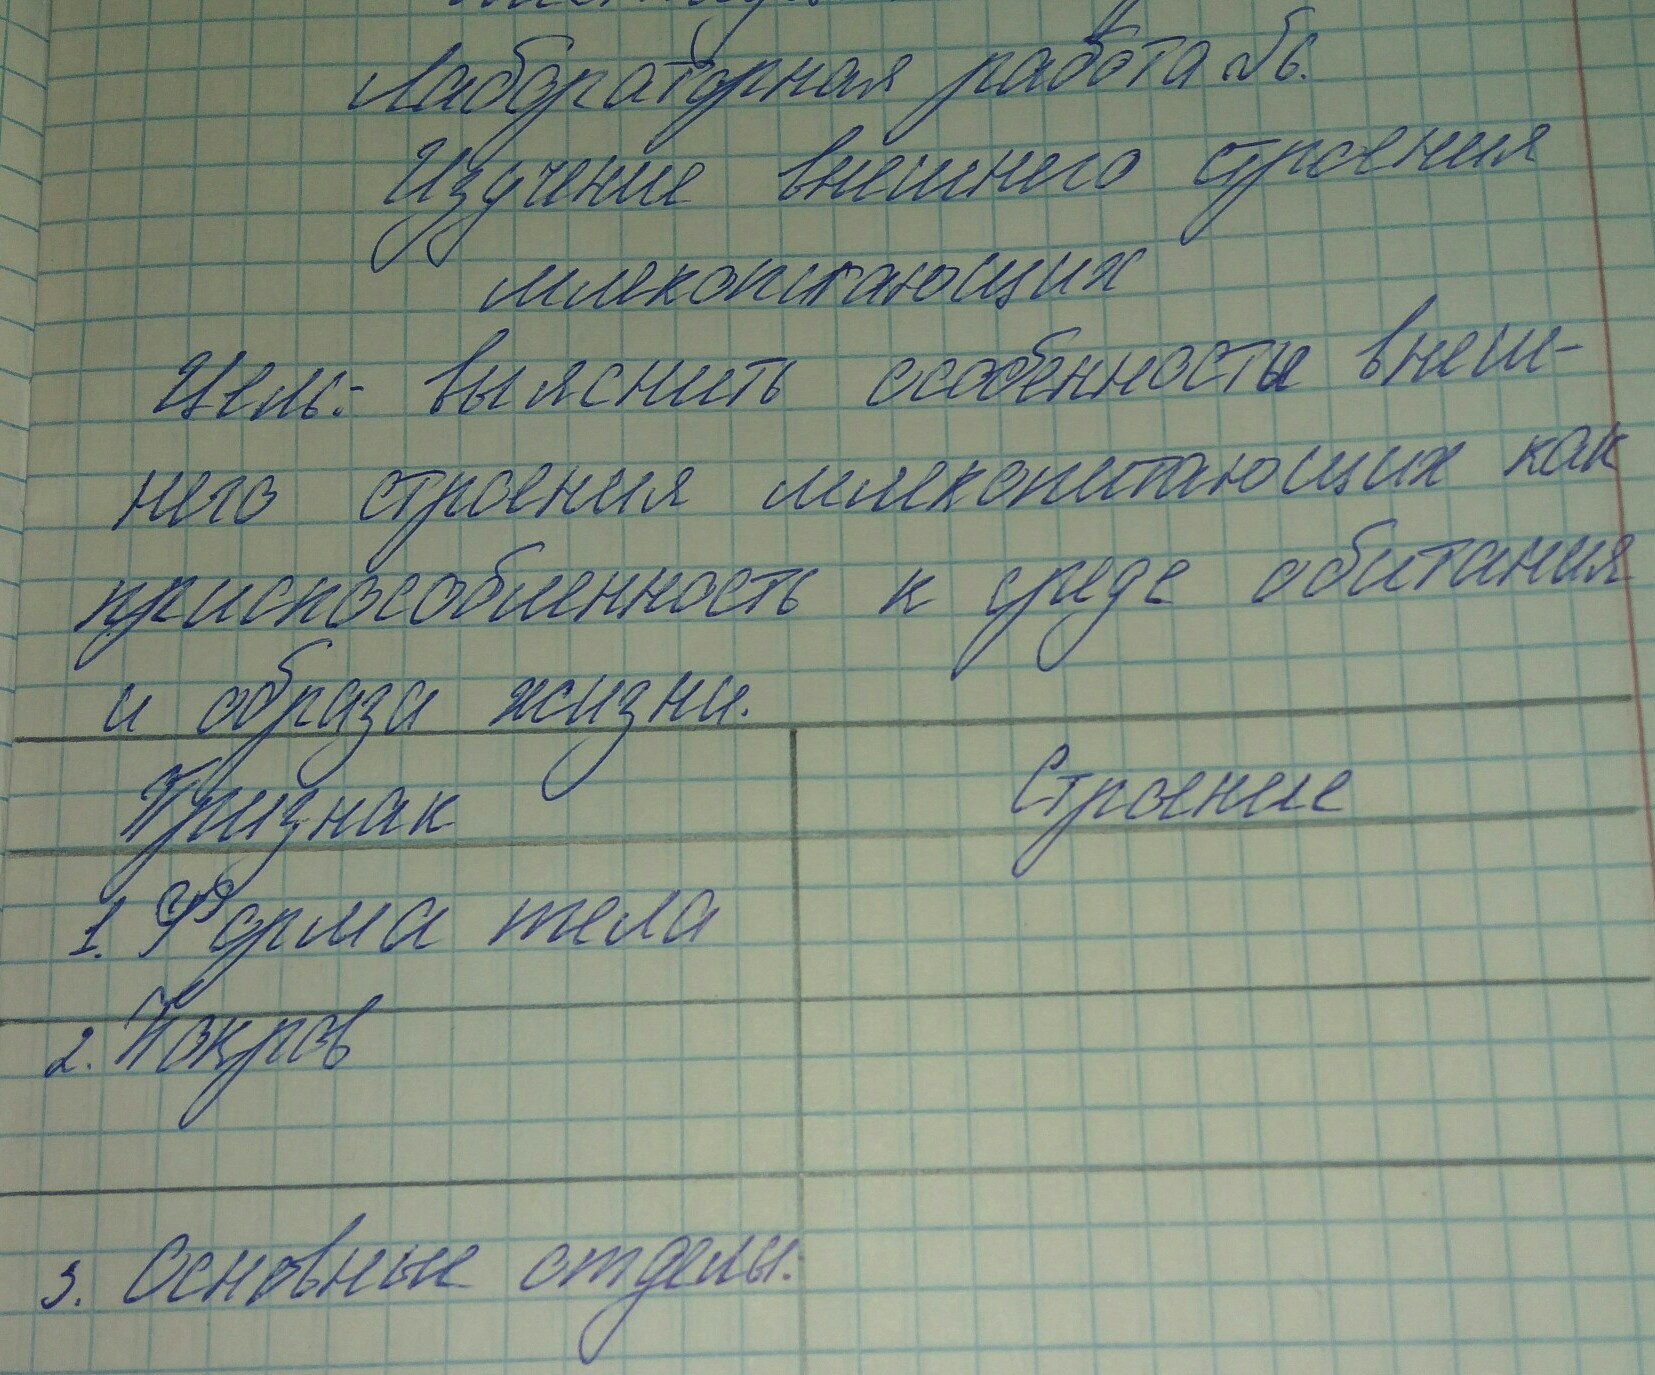 Лабораторная работа №6.
Изучение внешнего строения
млекопитающих
Цель: выяснить особенности внеш-
него строения млекопитающих как
приспособленность к среде обитания
и образа жизни.
Признак Строение
1. Форма тела
2. Покров
3. Основные отделы: